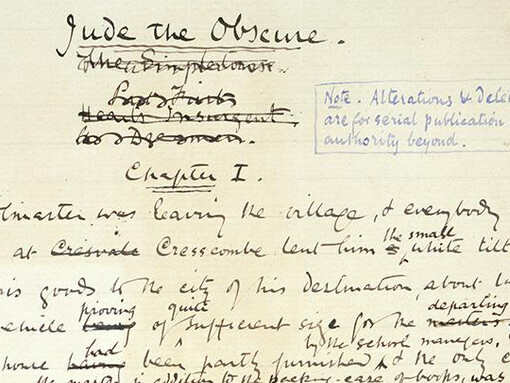 Jude the Obscure.
The Simpletons.
Hearts Insurgent.
Chapter I.
Note. Alterations & dele
are for serial publication
authority beyond.
lmaster was leaving the village, & everybody
at Cresscombe lent him the small white tilt
his goods to the city of his destination, about
proving quite departing
ehicle of sufficient size for the
by the school managers,
house had been partly furnished & the only
in addition to the packing-case of books, was